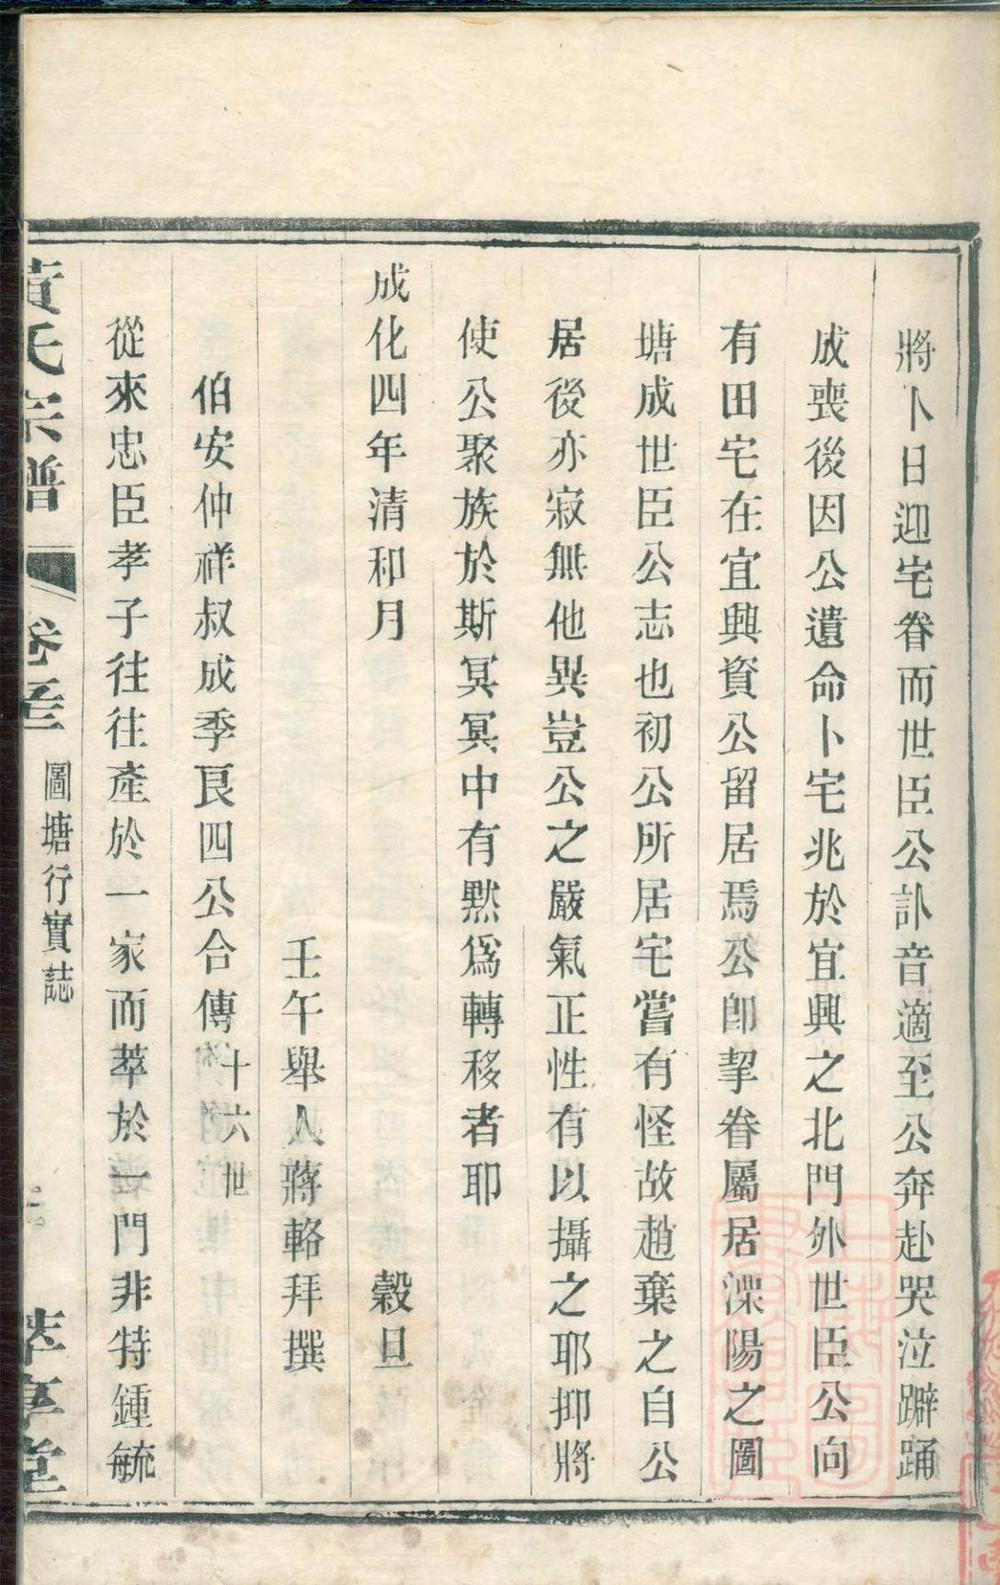 將卜日迎宅眷而世臣公訃音適至公奔赴哭泣躃踊
成喪後因公遺命卜宅兆於宜興之北門外世臣公向
有田宅在宜興資公留居焉公卽挈眷屬居溧陽之圖
塘成世臣公志也初公所居宅嘗有怪故趙棄之自公
居後亦寂無他異豈公之嚴氣正性有以攝之耶抑將
使公聚族於斯冥冥中有默爲轉移者耶
成化四年清和月 穀旦
壬午舉人蔣輅拜撰
伯安仲祥叔成季艮四公合傳 十六世
從來忠臣孝子往往產於一家而萃於一門非特鍾毓
黃氏宗譜 卷 圖塘行實誌 萃享堂